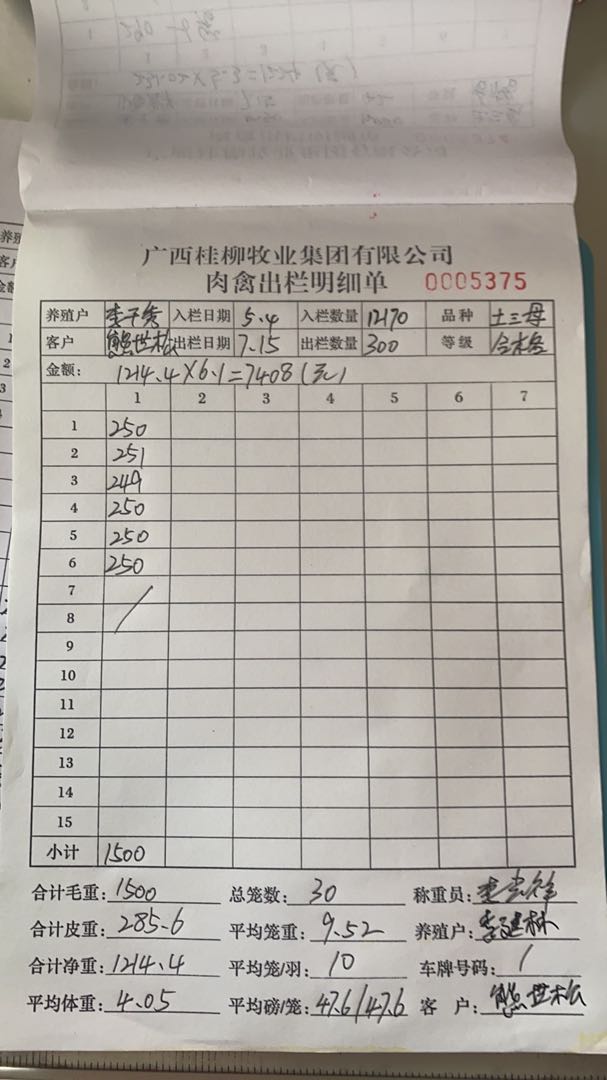 广西桂柳牧业集团有限公司
肉禽出栏明细单 0005375
养殖户 李干秀 入栏日期 5.4 入栏数量 12170 品种 土三母
客户 熊世松 出栏日期 7.15 出栏数量 300 等级 合格
金额: 1214.4×6.1=7408(元)
1 2 3 4 5 6 7
1 250
2 251
3 249
4 250
5 250
6 250
7
8
9
10
11
12
13
14
15
小计 1500
合计毛重: 1500 总笼数: 30 称重员:
合计皮重: 285.6 平均笼重: 9.52 养殖户: 李建林
合计净重: 1214.4 平均笼/羽: 10 车牌号码: /
平均体重: 4.05 平均磅/笼: 47.6/47.6 客户: 熊世松